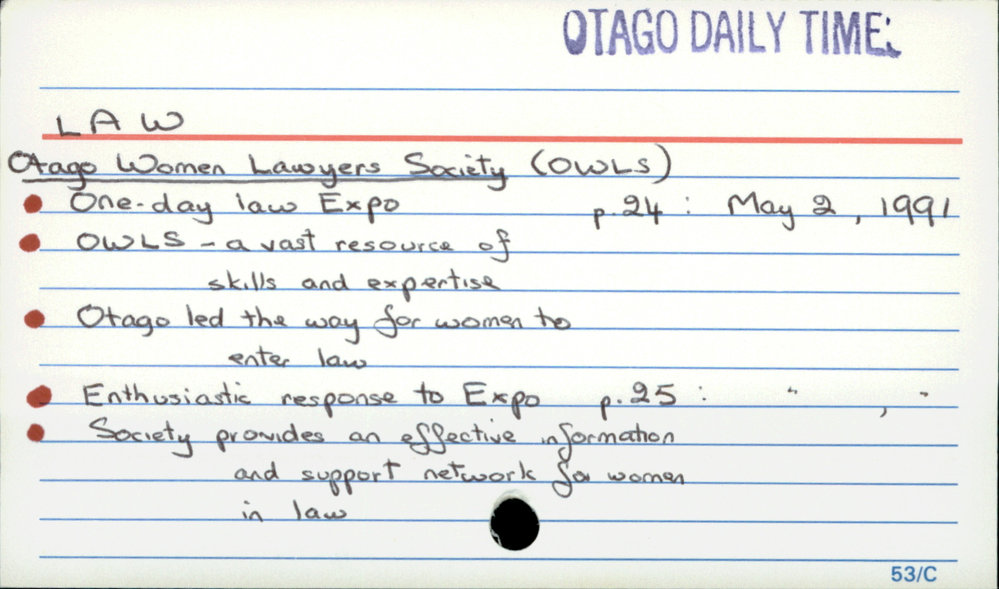 OTAGO DAILY TIMES
LAW
Otago Women Lawyers Society (OWLS)
One-day law Expo p.24 : May 2, 1991
OWLS - a vast resource of
skills and expertise
Otago led the way for women to
enter law
Enthusiastic response to Expo p.25 : " , "
Society provides an effective information
and support network for women
in law
53/C